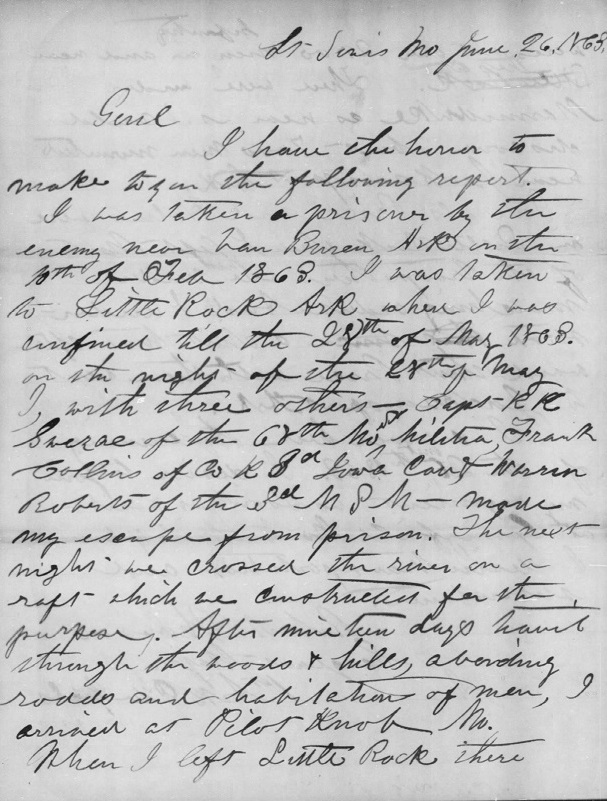 St Louis Mo June 26, 1863.
Genl
I have the honor to
make to you the following report.
I was taken a prisoner by the
enemy near Van Buren Ark on the
10th of Feb 1863. I was taken
to Little Rock Ark where I was
confined till the 28th of May 1863.
on the night of the 28th of May
I, with three others — Capt R R
of the 68th Mo Militia, Frank
Collins of Co K 3d Iowa Cav & Warren
Roberts of the 3d M S M — made
my escape from prison. The next
night we crossed the river on a
raft which we constructed for the
purpose. After nineteen days travel
through the woods & hills, avoiding
roads and habitations of men, I
arrived at Pilot Knob Mo.
When I left Little Rock there